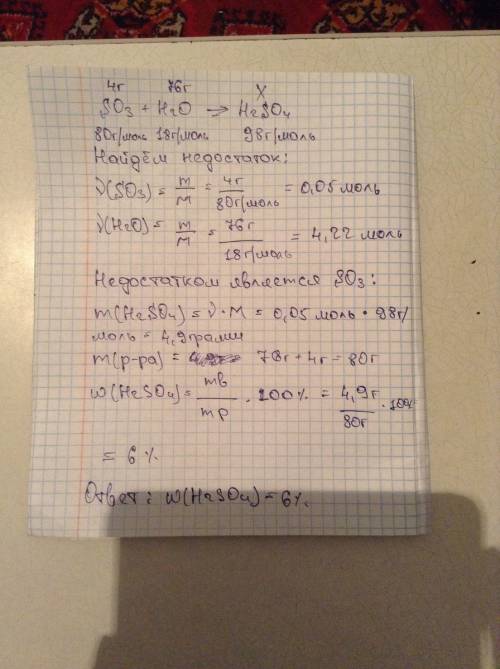 4г 76г X
SO3 + H2O → H2SO4
80г/моль 18г/моль 98г/моль
Найдём недостаток:
ν(SO3) = m/M = 4г/80г/моль = 0,05 моль
ν(H2O) = m/M = 76г/18г/моль = 4,22 моль
Недостатком является SO3:
m(H2SO4) = ν · M = 0,05 моль · 98г/
моль = 4,9 грамм
m(р-ра) = 76г + 4г = 80г
w(H2SO4) = mв/mр · 100% = 4,9г/80г · 100%
= 6%
Ответ: w(H2SO4) = 6%